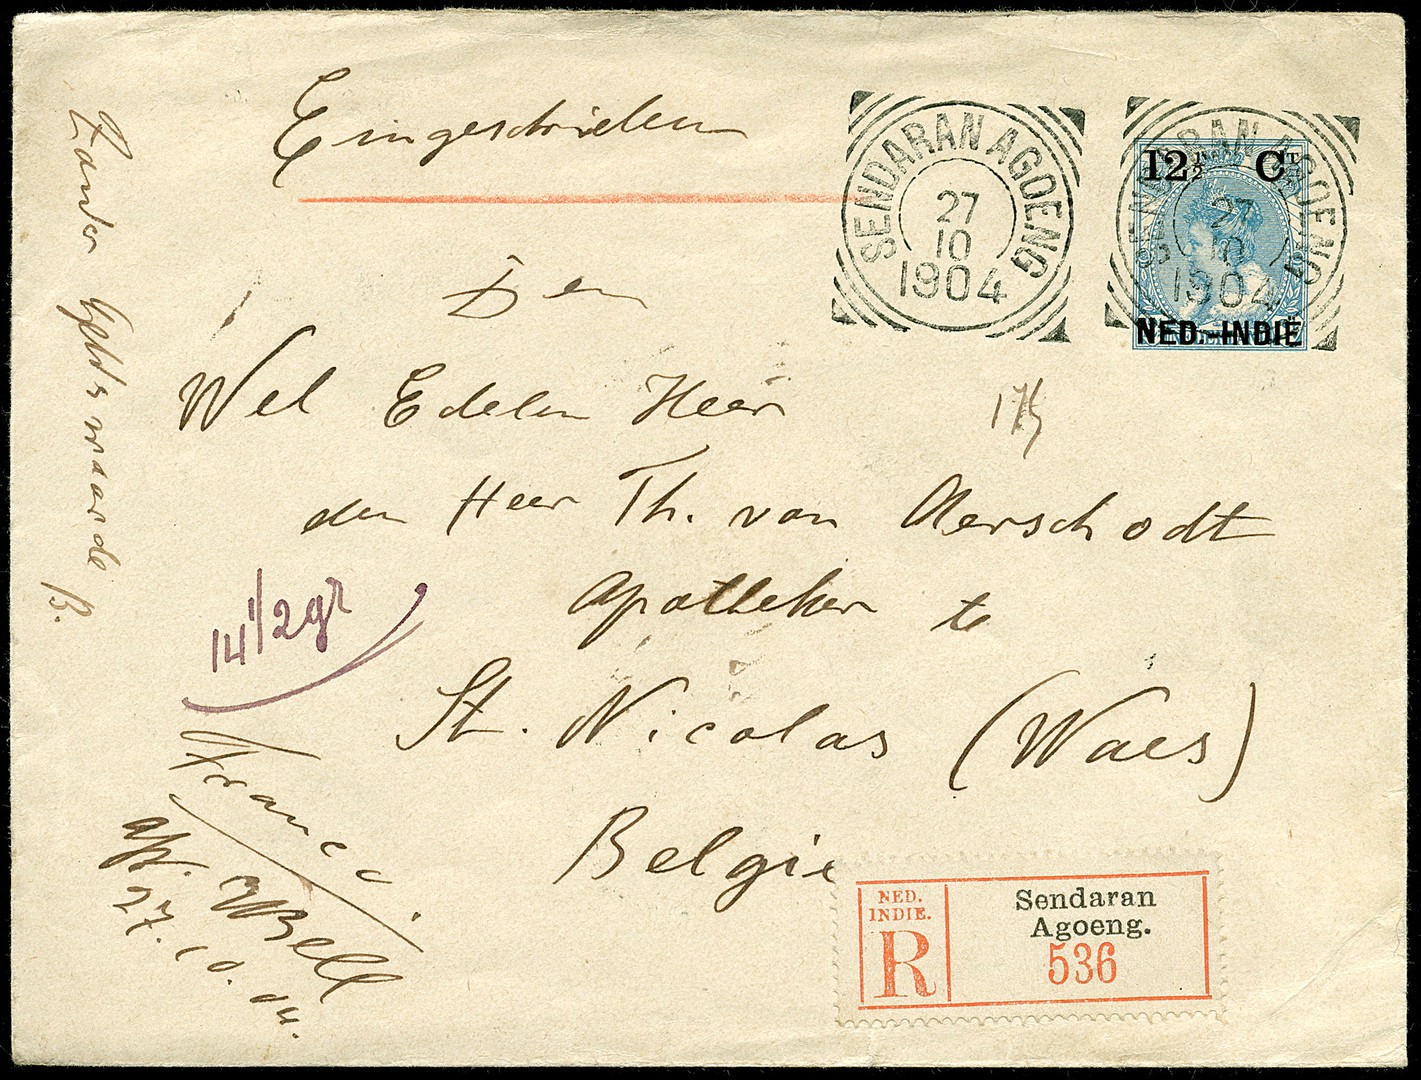 Eingeschrieben
SENDARAN AGOENG
27
10
1904
SENDARAN AGOENG
27
10
1904
12½ CT
NED.-INDIË
Den
Wel Edelen Heer
den Heer Th. van Aerschodt
Apotheker te
St. Nicolas (Waes)
Belgie
17½
Zonder Geldswaarde
B.
14 1/2 gr
Franco
27.10.04.
NED.
INDIE.
R
Sendaran
Agoeng.
536